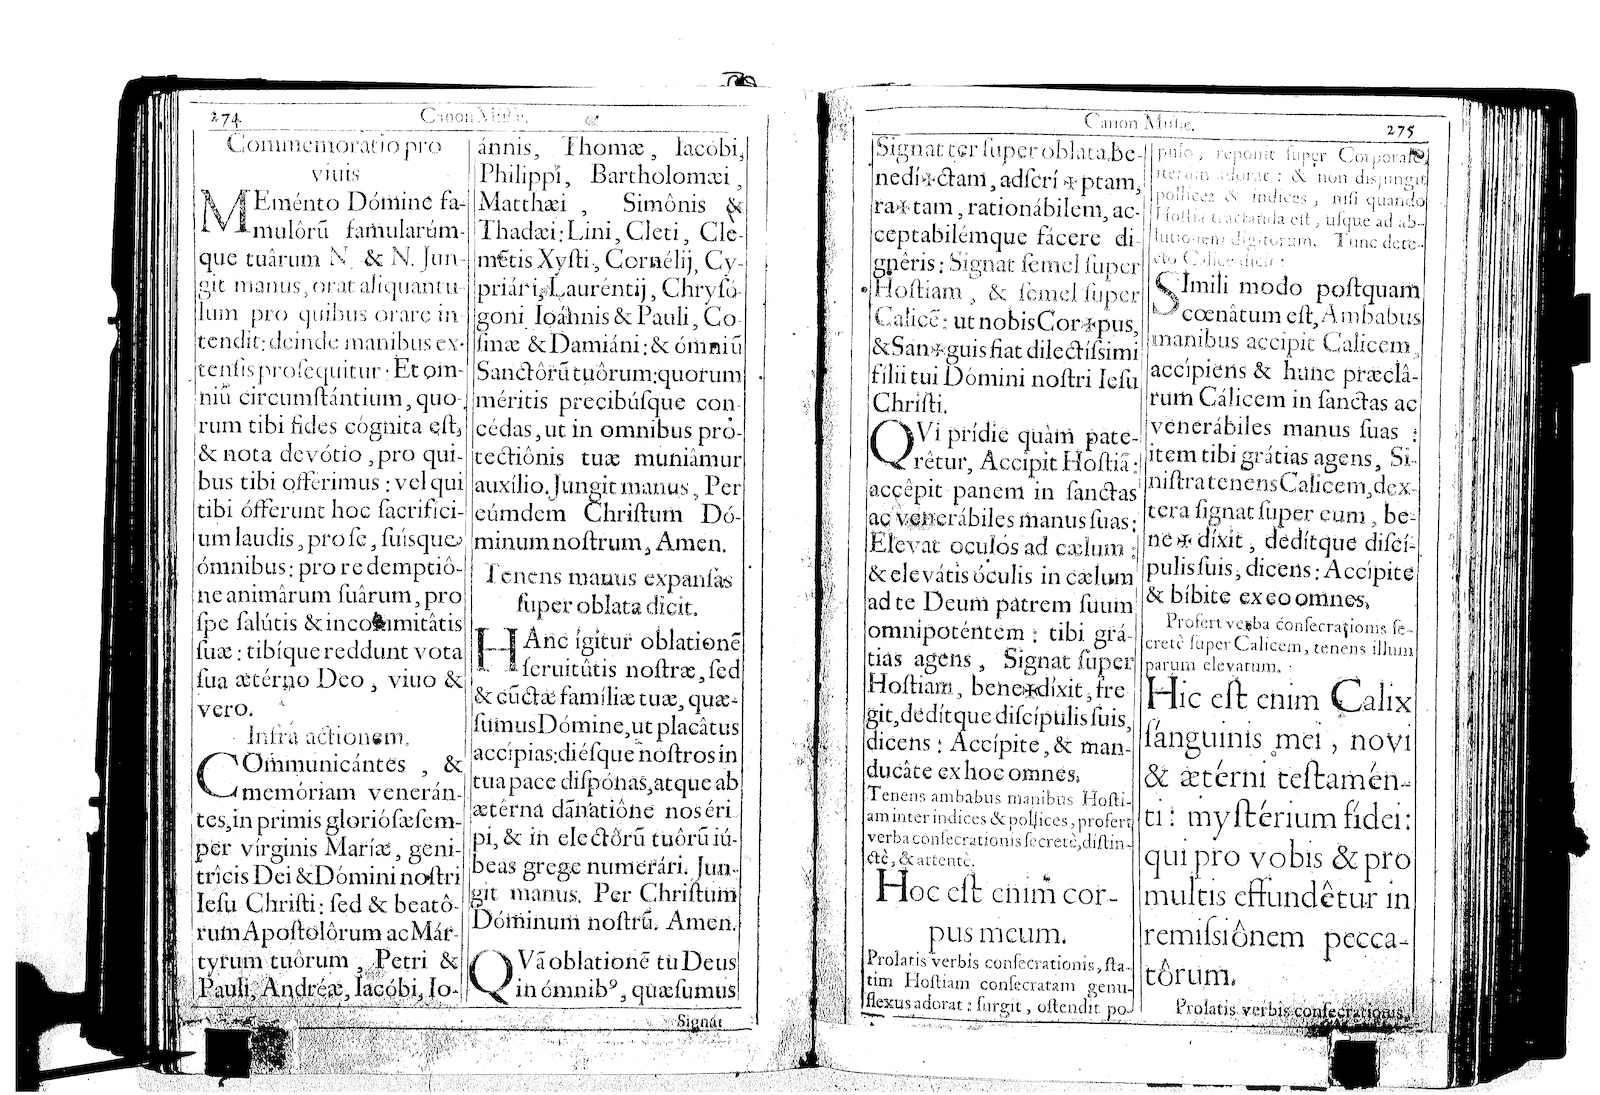 274
Canon Missæ.
Commemoratio pro
viuis
MEménto Dómine fa-
mulórũ famularúm-
que tuârum N. & N. Jun-
git manus, orat aliquantu-
lum pro quibus orare in
tendit: deinde manibus ex-
tensis prosequitur. Et om-
niũ circumstántium, quo-
rum tibi fides cógnita est,
& nota devótio, pro qui-
bus tibi offerimus: vel qui
tibi ófferunt hoc sacrifici-
um laudis, pro se, suisque
ómnibus: pro redemptiô-
ne animârum suârum, pro
spe salútis & incolumitâtis
suæ: tibíque reddunt vota
sua ætérno Deo, viuo &
vero.
Infra actionem.
COmmunicántes, &
memóriam venerán-
tes, in primis gloriósæ sem-
per vírginis Maríæ, geni-
trícis Dei & Dómini nostri
Iesu Christi: sed & beatô-
rum Apostolôrum ac Már-
tyrum tuôrum, Petri &
Pauli, Andréæ, Iacóbi, Io-
ánnis, Thomæ, Iacóbi,
Philippi, Bartholomæi,
Matthæi, Simônis &
Thadæi: Lini, Cleti, Cle-
mẽtis Xysti, Cornélij, Cy-
priáni, Lauréntij, Chrysó-
goni Ioánnis & Pauli, Co
smæ & Damiáni: & ómniũ
Sanctôrũ tuôrum: quorum
méritis precibúsque con-
cédas, ut in omnibus pro-
tectiônis tuæ muniâmur
auxílio. Jungit manus, Per
eúmdem Christum Dó-
minum nostrum, Amen.
Tenens manus expansas
super oblata dicit.
HAnc ígitur oblationẽ
seruitûtis nostræ, sed
& cũctæ famíliæ tuæ, quæ-
sumus Dómine, ut placâtus
accípias: diésque nostros in
tua pace dispónas, atque ab
ætérna dãnatiône nos éri
pi, & in electôrũ tuôrũ iú-
beas grege numerári. Jun-
git manus. Per Christum
Dóminum nostrũ. Amen.
QVã oblationẽ tu Deus
in ómnib⁹, quæsumus
Signat
Canon Missæ.
275
Signat ter super oblata, be-
nedi✠ctam, adscrí✠ptam,
ra✠tam, rationábilem, ac-
ceptabilémque fácere di-
gnêris: Signat semel super
Hostiam, & semel super
Calicẽ: ut nobis Cor✠pus,
& San✠guis fiat dilectíssimi
filii tui Dómini nostri Iesu
Christi.
QVi prídie quàm pate-
rêtur, Accipit Hostiã:
accêpit panem in sanctas
ac venerábiles manus suas:
Elevat oculos ad cælum:
& elevátis óculis in cælum
ad te Deum patrem suum
omnipoténtem: tibi grá-
tias agens, Signat super
Hostiam, bene✠díxit, fre
git, dedítque discípulis suis,
dicens: Accípite, & man-
ducâte ex hoc omnes,
Tenens ambabus manibus Hosti-
am inter indices & pollices, profert
verba consecrationis secretè, distin-
ctè, & attentè.
Hoc est enim cor-
pus meum.
Prolatis verbis consecrationis, sta-
tim Hostiam consecratam genu-
flexus adorat: surgit, ostendit po-
pulo, reponit super Corporale,
iterum adorat: & non disjungit
pollices & indices, nisi quando
Hostia tractanda est, usque ad ab-
lutionem digitorum. Tunc dete-
cto Calice dicit:
SImili modo postquam
cœnâtum est, Ambabus
manibus accipit Calicem,
accípiens & hunc præclâ-
rum Cálicem in sanctas ac
venerábiles manus suas:
item tibi grátias agens, Si-
nistra tenens Calicem, dex-
tera signat super eum, be-
ne✠díxit, dedítque discí-
pulis suis, dicens: Accípite
& bíbite ex eo omnes,
Profert verba consecrationis se-
cretè super Calicem, tenens illum
parum elevatum.
Hic est enim Calix
sánguinis mei, novi
& ætérni testamén-
ti: mystérium fídei:
qui pro vobis & pro
multis effundêtur in
remissiônem pecca-
tôrum.
Prolatis verbis consecrationis,